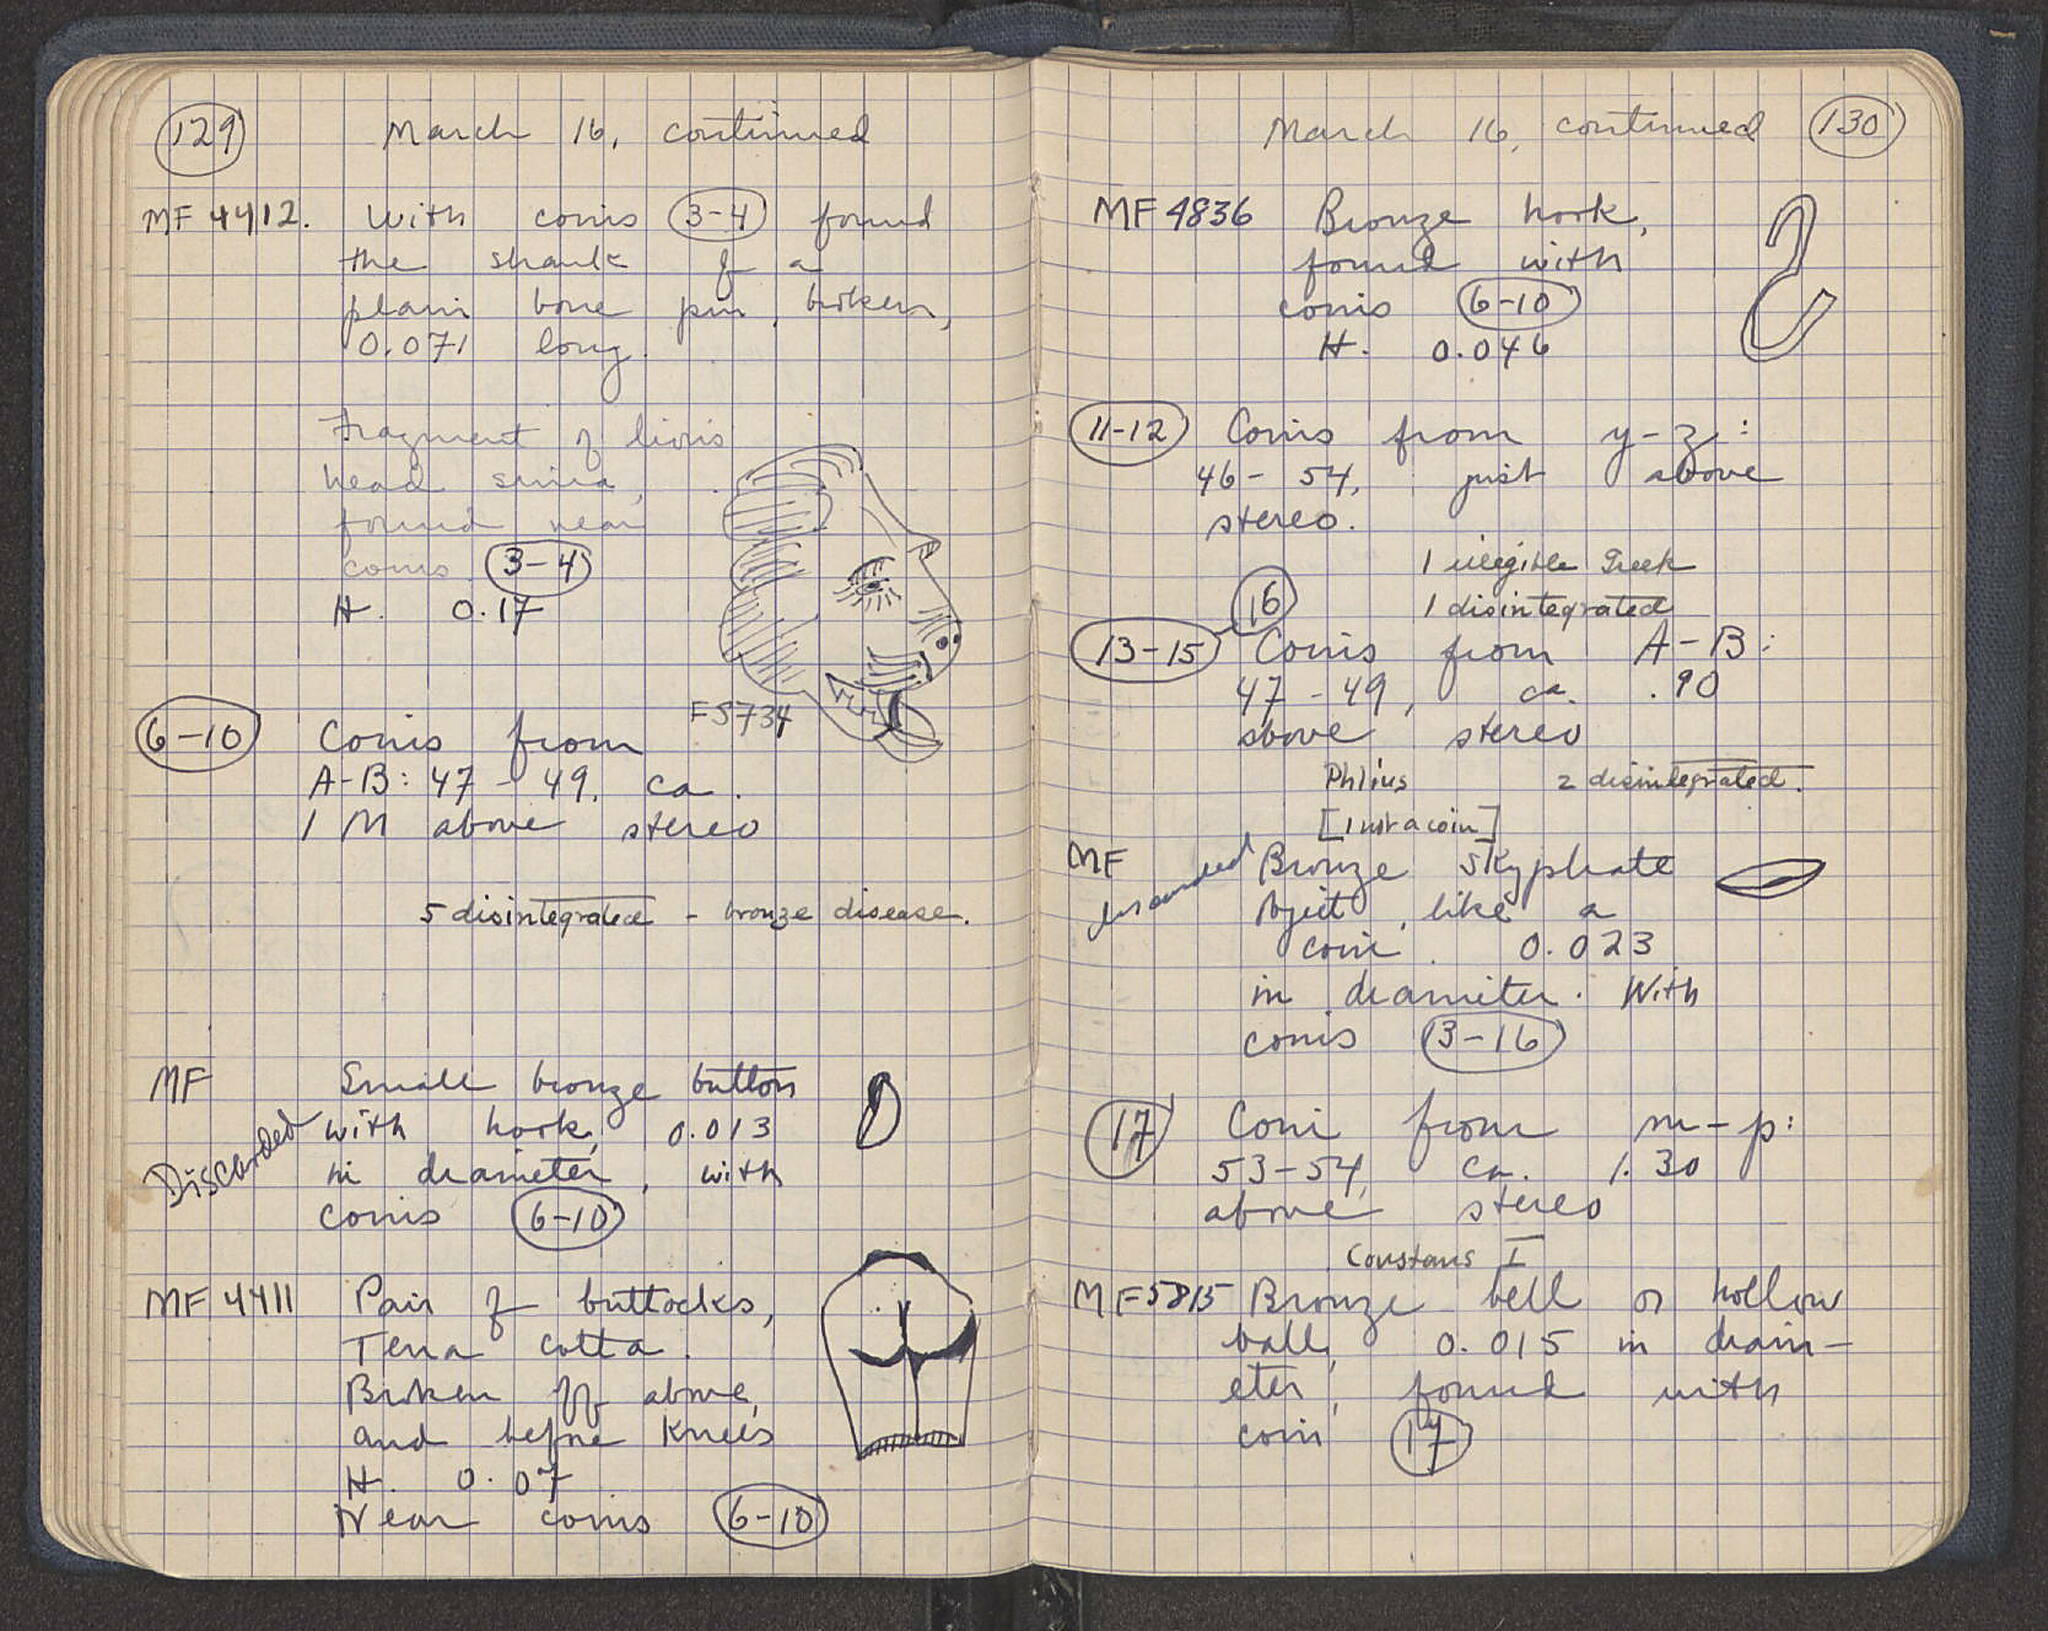 129
March 16, continued
MF 4412. With coins 3-4 found
the shank of a
plain bone pin, broken,
0.071 long.
Fragment of lion's
head sima,
found near
coins 3-4
H. 0.17
FS734
6-10 Coins from
A-B: 47 - 49, ca.
1 M above stereo
5 disintegrated - bronze disease.
MF Small bronze button
Discarded with hook, 0.013
in diameter, with
coins 6-10
MF 4411 Pair of buttocks,
Terra cotta.
Broken off above,
and before knees
H. 0.07
Near coins 6-10
March 16, continued 130
MF 4836 Bronze hook,
found with
coins 6-10
H. 0.046
11-12 Coins from y-z:
46- 54, just above
stereo.
1 illegible Greek
16 1 disintegrated
13-15 Coins from A-B:
47 - 49, ca. .90
above stereo
Phlius 2 disintegrated.
[1 not a coin]
MF Bronze skyphate
discarded object, like a
coin. 0.023
in diameter. With
coins 13-16
17 Coin from m-p:
53-54, ca. 1.30
above stereo
Constans I
MF 5815 Bronze bell or hollow
ball, 0.015 in diam-
eter, found with
coin 17